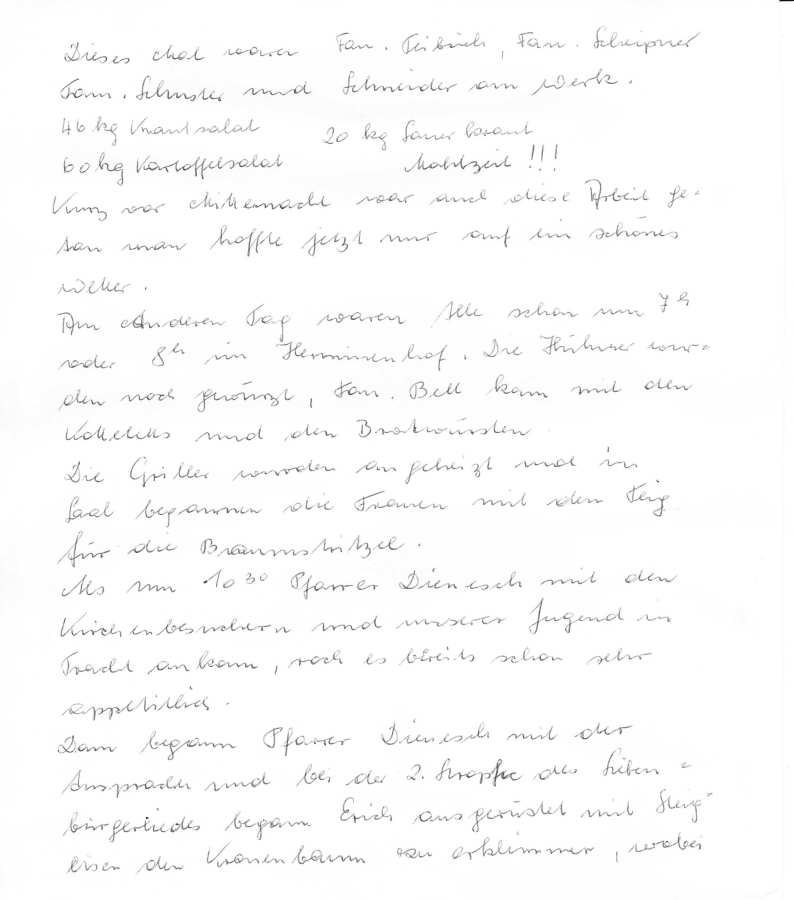 Dieses Mal waren Fam. Teibich, Fam. Scheipner
Fam. Schuster und Schneider am Werk.
46 kg Krautsalat 20 kg Sauerkraut
60 kg Kartoffelsalat Mahlzeit !!!
Kurz vor Mitternacht war auch diese Arbeit ge=
tan man hoffte jetzt nur auf ein schönes
Wetter.
Am Anderen Tag waren Alle schon um 7 h
oder 8 h im Herminenhof. Die Hühner wur=
den noch gewürzt, Fam. Bell kam mit den
Koteletts und den Bratwürsten
Die Griller wurden angeheizt und in
Saal begannen die Frauen mit den Teig
für die Baumstritzel.
Als um 10 30 Pfarrer Dienesch mit den
Kirchenbesuchern und unserer Jugend in
Tracht ankam, roch es bereits schon sehr
appetitlich.
Dann begann Pfarrer Dienesch mit der
Ansprache und bei der 2. Strophe des Sieben=
bürgerliedes begann Erich ausgerüstet mit Steig=
eisen den Kronenbaum zu erklimmen, wobei